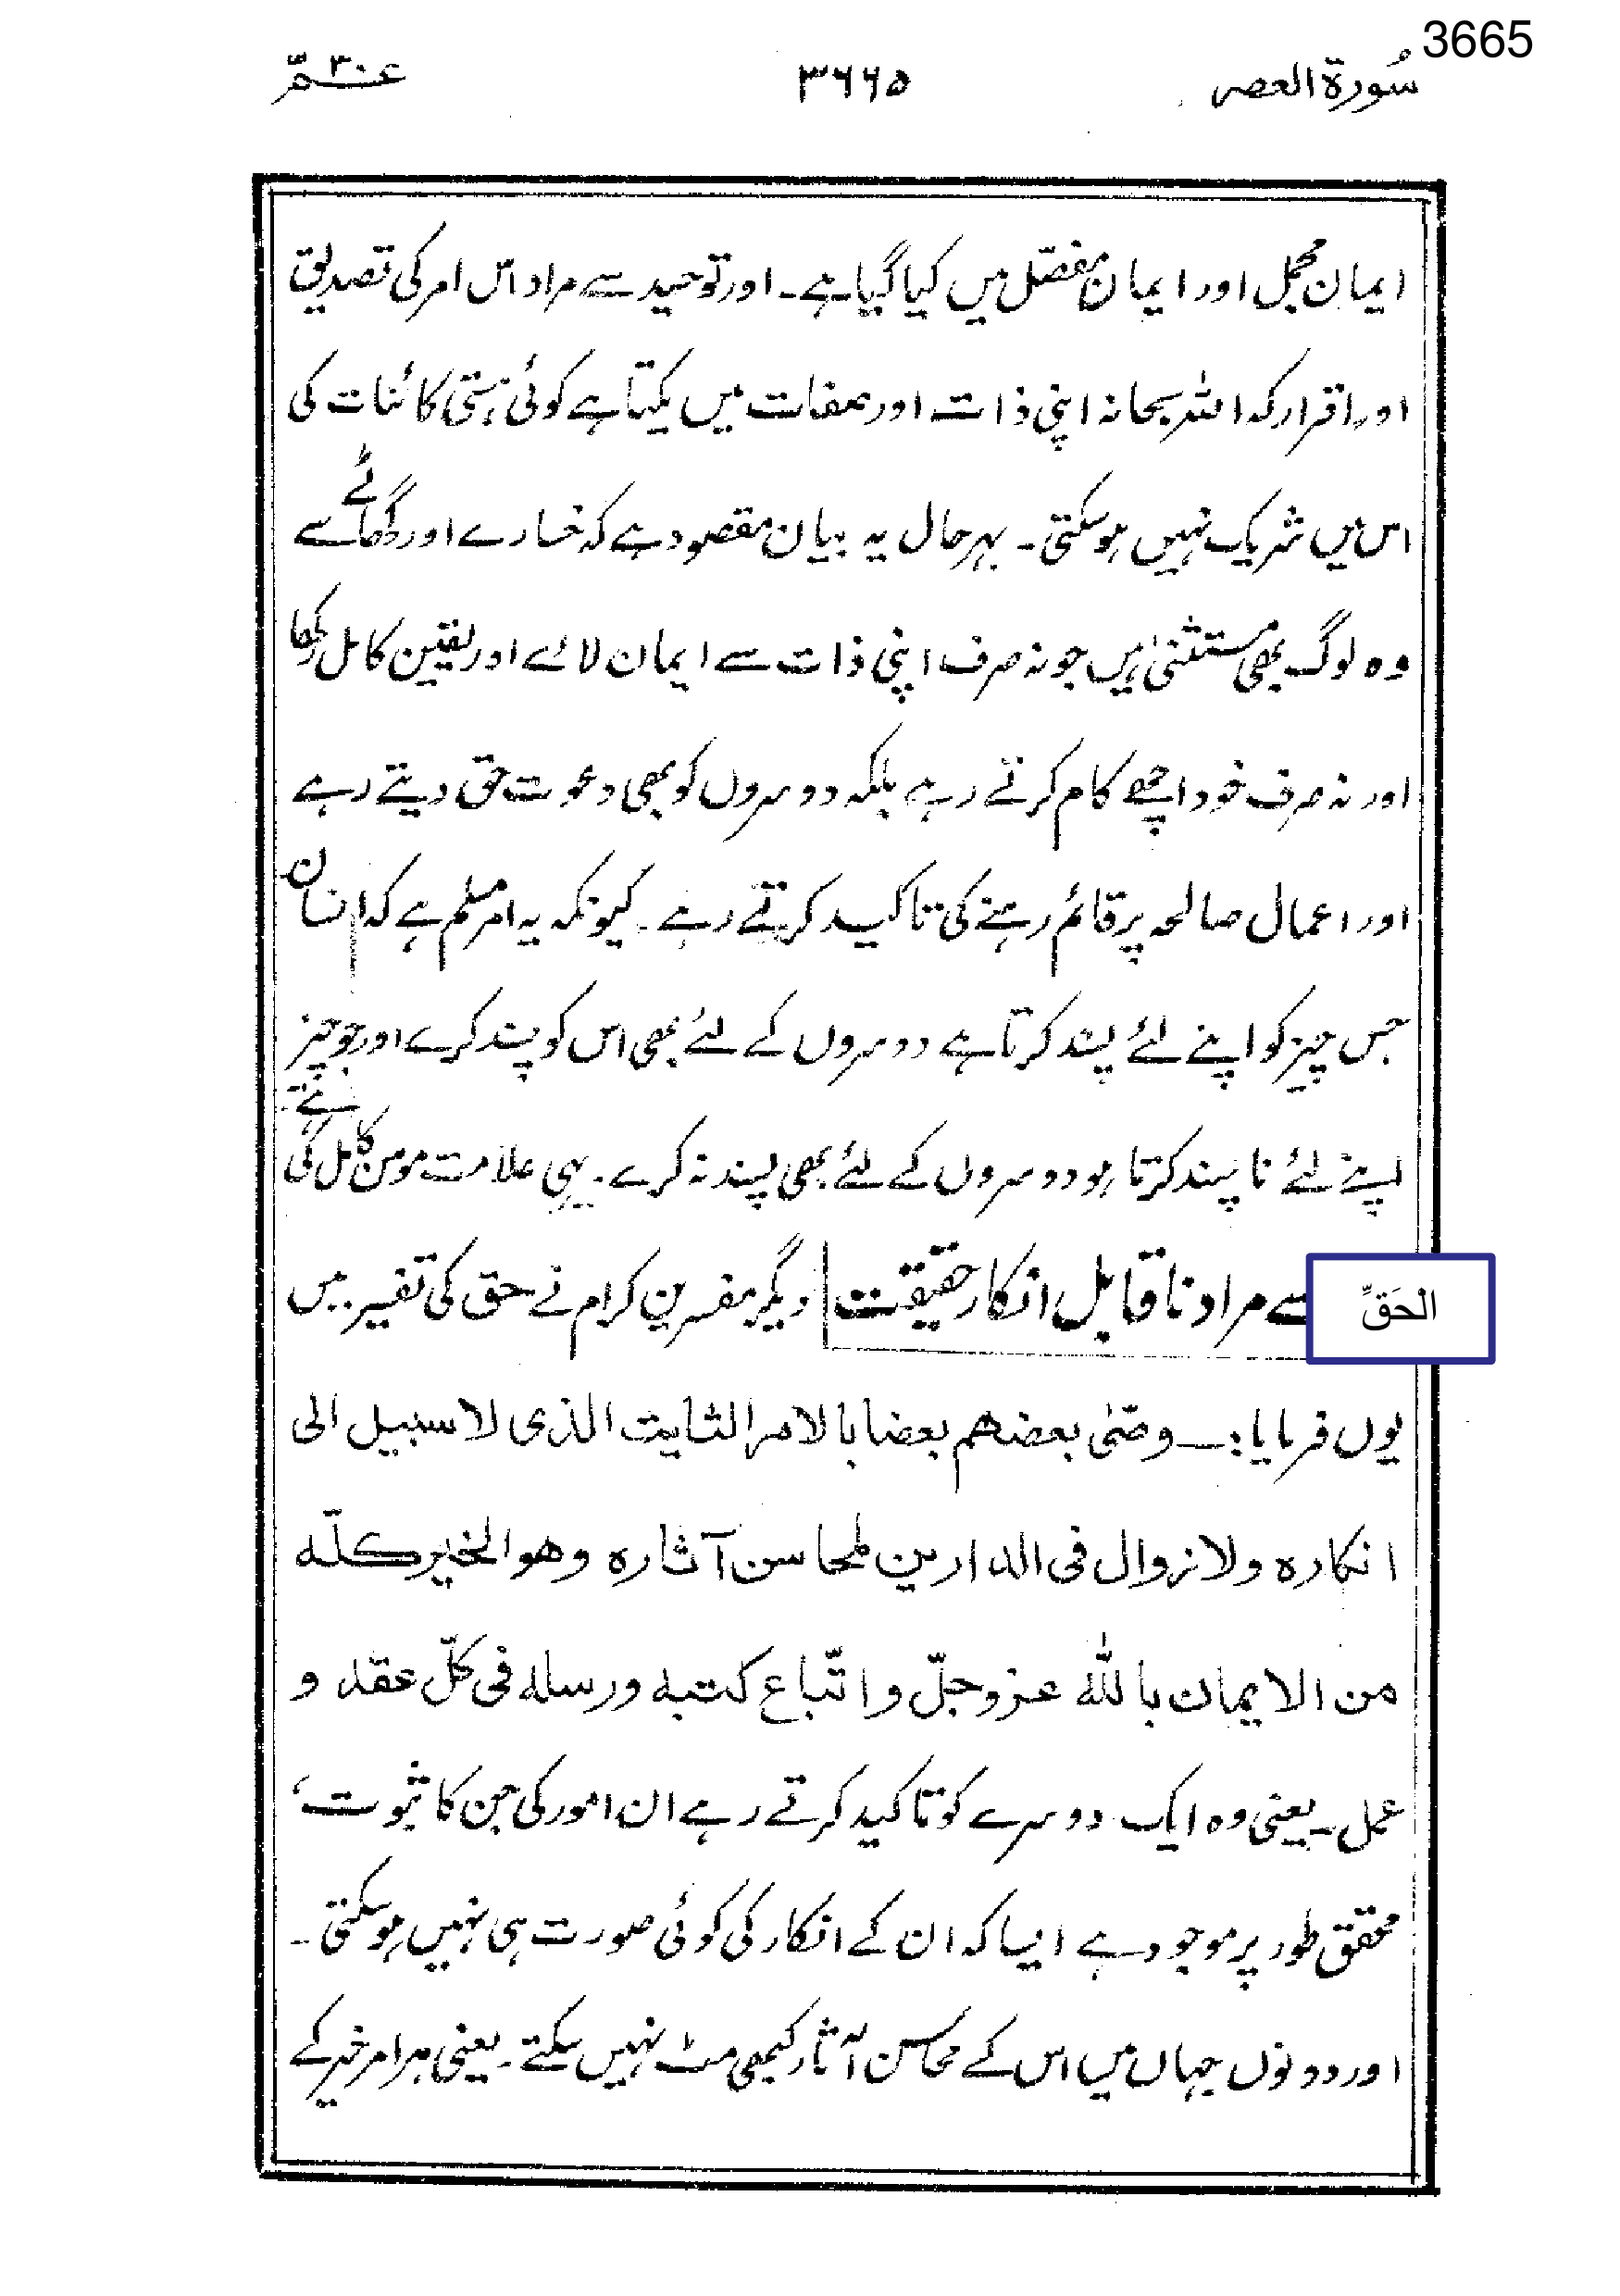 3665
سُورۃ العصر ۳۶۶۵ عمّ ۳۰
ایمان مجمل اور ایمان مفصّل میں کیا گیا ہے۔ اور توحید سے مراد اس امر کی تصدیق
اور اقرار کہ اللہ سبحانہ اپنی ذات اور صفات میں یکتا ہے کوئی ہستی کائنات کی
اس میں شریک نہیں ہو سکتی۔ بہرحال یہ بیان مقصود ہے کہ خسارے اور گھاٹے سے
وہ لوگ بھی مستثنیٰ ہیں جو نہ صرف اپنی ذات سے ایمان لائے اور یقین کامل رکھا
اور نہ صرف خود اچھے کام کرتے رہے بلکہ دوسروں کو بھی دعوت حق دیتے رہے
اور اعمال صالحہ پر قائم رہنے کی تاکید کرتے رہے۔ کیونکہ یہ امر مسلم ہے کہ انسان
جس چیز کو اپنے لئے پسند کرتا ہے دوسروں کے لئے بھی اس کو پسند کرے اور جو چیز
اپنے لئے ناپسند کرتا ہو دوسروں کے لئے بھی پسند نہ کرے۔ یہی علامت مومن کامل کی ہے۔
الحَقِّ سے مراد ناقابل انکار حقیقت دیگر مفسرین کرام نے حق کی تفسیر میں
یوں فرمایا:۔ وصّٰی بعضھم بعضا بالامر الثابت الذی لا سبیل الی
انکارہ ولا زوال فی الدارین لمحاسن آثارہ وھو الخیر کلّہ
من الایمان باللہ عزوجلّ واتّباع کتبہ ورسلہ فی کلّ عقد و
عمل۔ یعنی وہ ایک دوسرے کو تاکید کرتے رہے ان امور کی جن کا ثبوت،
محقق طور پر موجود ہے ایسا کہ ان کے انکار کی کوئی صورت ہی نہیں ہو سکتی۔
اور دونوں جہاں میں اس کے محاسن آثار کبھی مٹ نہیں سکتے۔ یعنی ہر امر خیر کے